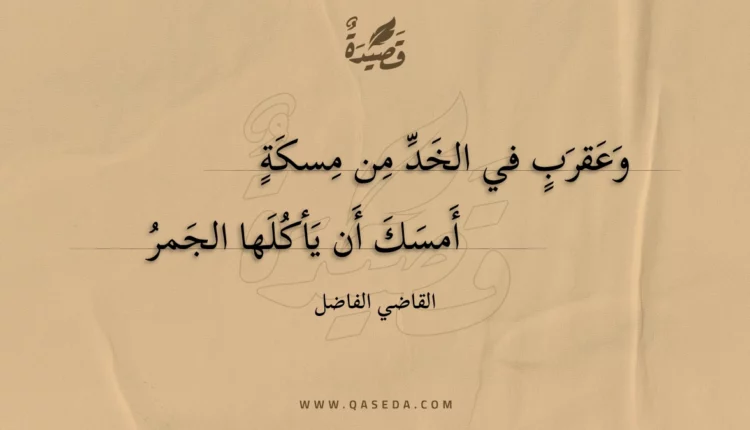 قَصِيدَةٌ
وَعَقرَبٍ في الخَدِّ مِن مِسكَةٍ
أَمسَكَ أَن يَأكُلَها الجَمرُ
القاضي الفاضل
WWW.QASEDA.COM